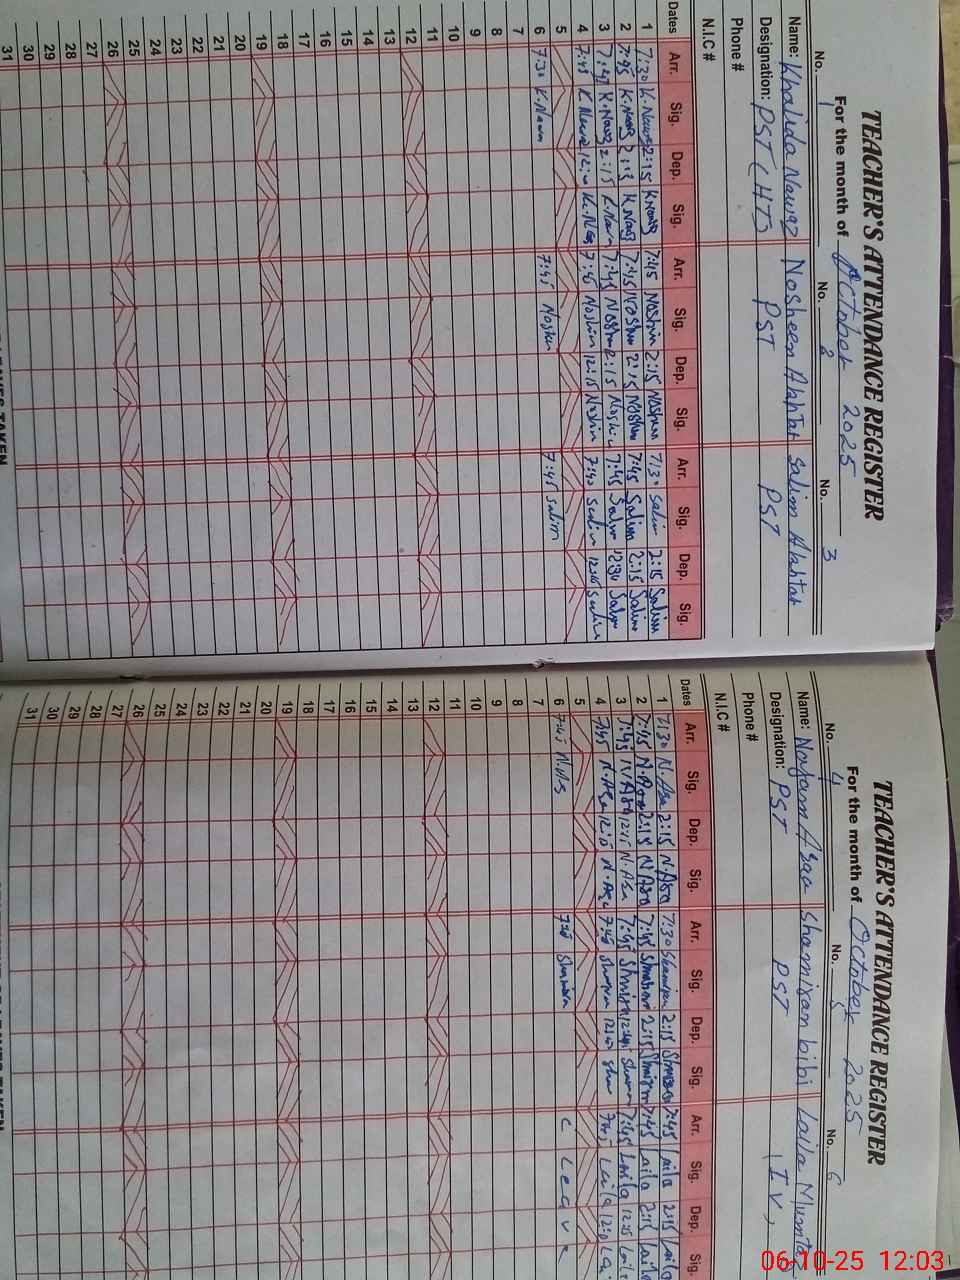 TEACHER'S ATTENDANCE REGISTER
For the month of October 2025
No. 1 No. 2 No. 3
Name: Khalida Nawaz Nosheen Alahtat Salim Alahtat
Designation: PST (HT) PST PST
Phone #
N.I.C #
Dates Arr. Sig. Dep. Sig. Arr. Sig. Dep. Sig. Arr. Sig. Dep. Sig.
1 7:30 K.Nawaz 2:15 K.Nawaz 7:45 Noshin 2:15 Noshin 7:30 Salim 2:15 Salim
2 7:45 K.Nawaz 2:15 K.Nawaz 7:45 Noshin 2:15 Noshin 7:45 Salim 2:15 Salim
3 7:45 K.Nawaz 2:15 K.Nawaz 7:45 Noshin 2:15 Noshin 7:45 12:30
4 7:45 K.Nawaz K.Nawaz 7:45 Noshin 12:15 Noshin 7:40 Salim 12:15 Salim
5
6 7:30 K.Nawaz 7:45 Noshin 7:45 Salim
7
8
9
10
11
12
13
14
15
16
17
18
19
20
21
22
23
24
25
26
27
28
29
30
31
TEACHER'S ATTENDANCE REGISTER
For the month of October 2025
No. 4 No. 5 No. 6
Name: Najam Asaa Shamisan bibi Laila Mumtaz
Designation: PST PST IV
Phone #
N.I.C #
Dates Arr. Sig. Dep. Sig. Arr. Sig. Dep. Sig. Arr. Sig. Dep. Sig.
1 7:30 N.Asa 2:15 N.Asa 7:30 2:15 7:45 Laila 2:15 Laila
2 7:45 N.Asa 2:15 N.Asa 7:45 2:15 7:45 Laila 2:15 Laila
3 7:45 N.Asa 12:15 N.Asa 7:45 7:45 Laila 12:15 Laila
4 7:45 N.Asa 12:15 N.Asa 7:45 12:10 7:45 Laila 12:10
5
6 7:45 7:45 C Leave
7
8
9
10
11
12
13
14
15
16
17
18
19
20
21
22
23
24
25
26
27
28
29
30
31
06-10-25 12:03